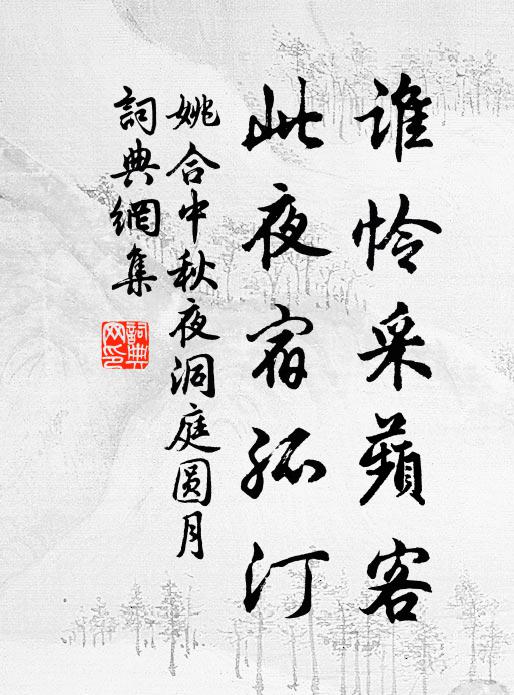 谁怜采蘋客
此夜宿孤汀
姚合中秋夜洞庭圆月
詞典網集
詞典網印